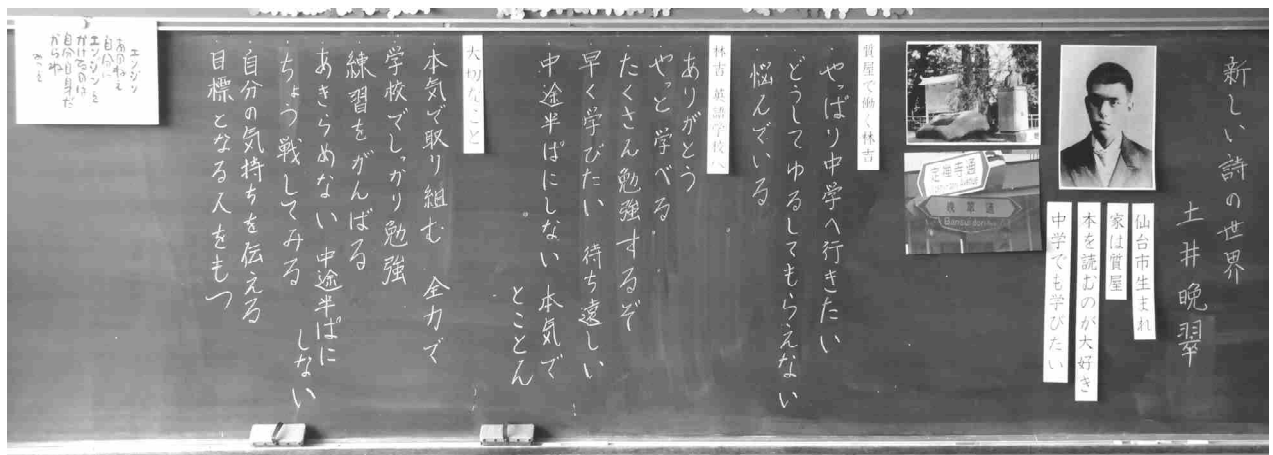 新しい詩の世界
土井晩翠
仙台市生まれ
家は質屋
本を読むのが大好き
中学でも学びたい
定禅寺通
晩翠通
Bansui dori
質屋で働く林吉
・やっぱり中学へ行きたい
・どうしてゆるしてもらえない
・悩んでいる
林吉 英語学校へ
・ありがとう
・やっと学べる
・たくさん勉強するぞ
・早く学びたい 待ち遠しい
・中途半ぱにしない 本気で
とことん
大切なこと
・本気で取り組む 全力で
・学校でしっかり勉強
・練習をがんばる
・あきらめない 中途半ぱに
しない
・ちょう戦してみる
・自分の気持ちを伝える
・目標となる人をもつ
エンジン
あのねえ
自分に
エンジンを
かけるのは
自分自身だ
からね
みつを